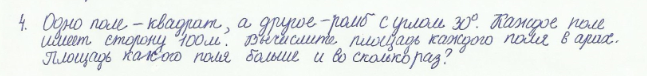 4. Одно поле - квадрат, а другое - ромб с углом 30°. Каждое поле
имеет сторону 100м. Вычислите площадь каждого поля в арах.
Площадь какого поля больше и во сколько раз?